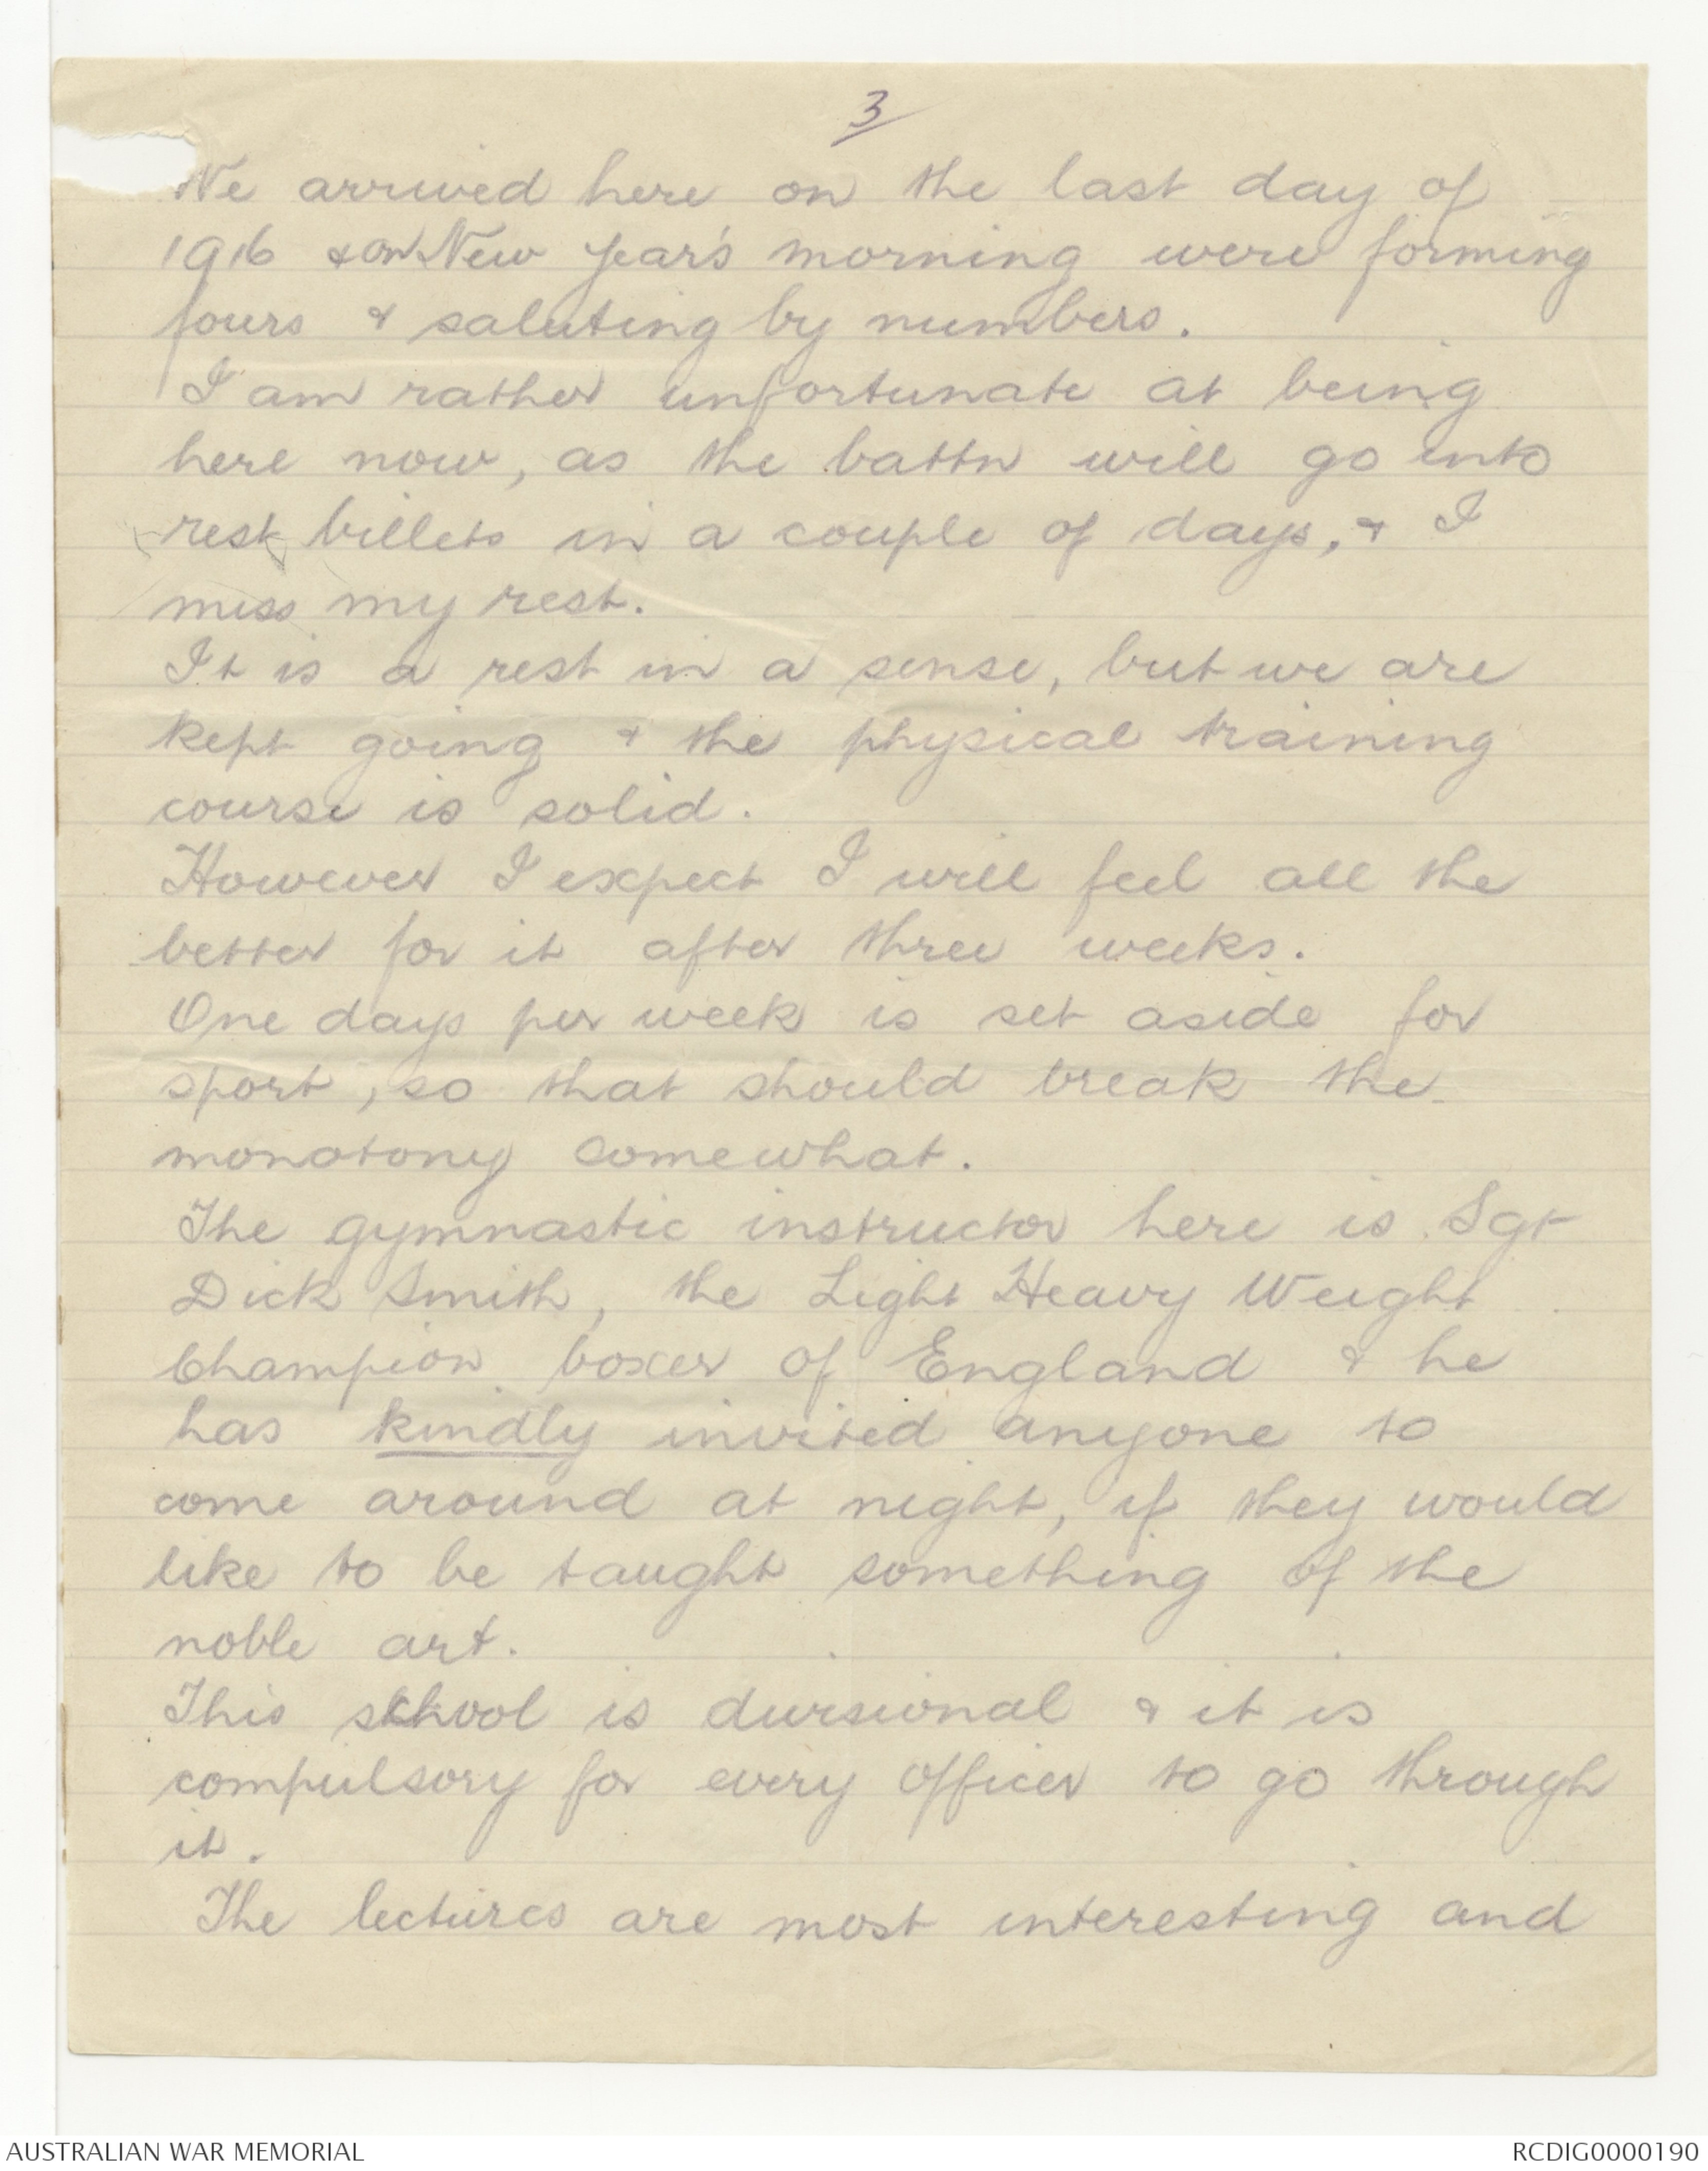 3/
We arrived here on the last day of
1916 & on New Year's morning were forming
fours & saluting by numbers.
I am rather unfortunate at being
here now, as the battn will go into
rest billets in a couple of days, & I
miss my rest.
It is a rest in a sense, but we are
kept going & the physical training
course is solid.
However I expect I will feel all the
better for it after three weeks.
One days per week is set aside for
sport, so that should break the
monotony somewhat.
The gymnastic instructor here is Sgt
Dick Smith, the Light Heavy Weight
Champion boxer of England & he
has kindly invited anyone to
come around at night, if they would
like to be taught something of the
noble art.
This school is divisional & it is
compulsory for every officer to go through
it.
The lectures are most interesting and
AUSTRALIAN WAR MEMORIAL
RCDIG0000190